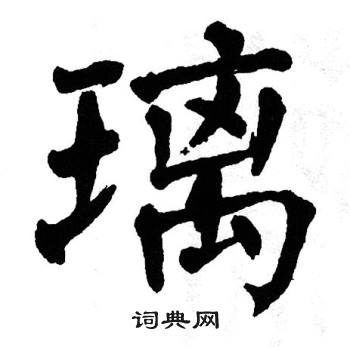 璃
词典网